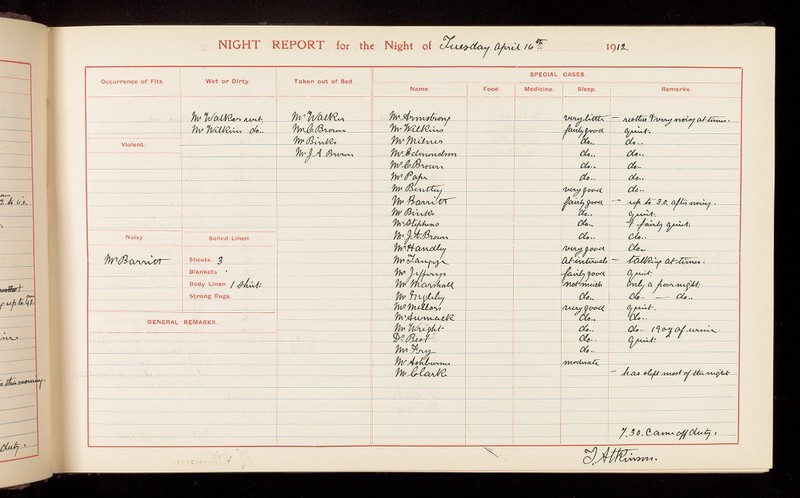 NIGHT REPORT for the Night of Tuesday April 16th 1912.
SPECIAL CASES.
Occurrence of Fits. Wet or Dirty. Taken out of Bed. Name. Food. Medicine. Sleep. Remarks.
Mr Walker wet. Mr Walker Mr Armstrong very little — restless & very noisy at times.
Mr Wilkins do.. Mr C. Brown Mr Wilkins fairly good quiet.
Violent. Mr Binks Mr Milner do.. do..
Mr J. A. Brown Mr Edmondson do.. do..
Mr C. Brown do.. do..
Mr Pape do.. do..
Mr Bentley very good do..
Mr Barritt fairly good — up to 3.0. often noisy.
Mr Binks do.. quiet.
Mr Stephens do.. fairly quiet.
Noisy. Soiled Linen. Mr J. A. Brown do.. do..
Mr Barritt Mr Handley very good do..
Sheets. 3 Mr at intervals — talking at times.
Blankets Mr Jefferys fairly good quiet.
Body Linen. 1 Shirt. Mr Marshall not much only a poor night.
Strong Rugs. Mr do.. do.. — do..
Mr Mellors very good quiet.
GENERAL REMARKS. Mr do.. do..
Mr Wright do.. do.. 19 oz of urine.
Dr Best do.. quiet.
Mr Fry do..
Mr Ashburner moderate
Mr G. Clark — has slept most of the night
7.30. Came off duty.
J. Atkinson.